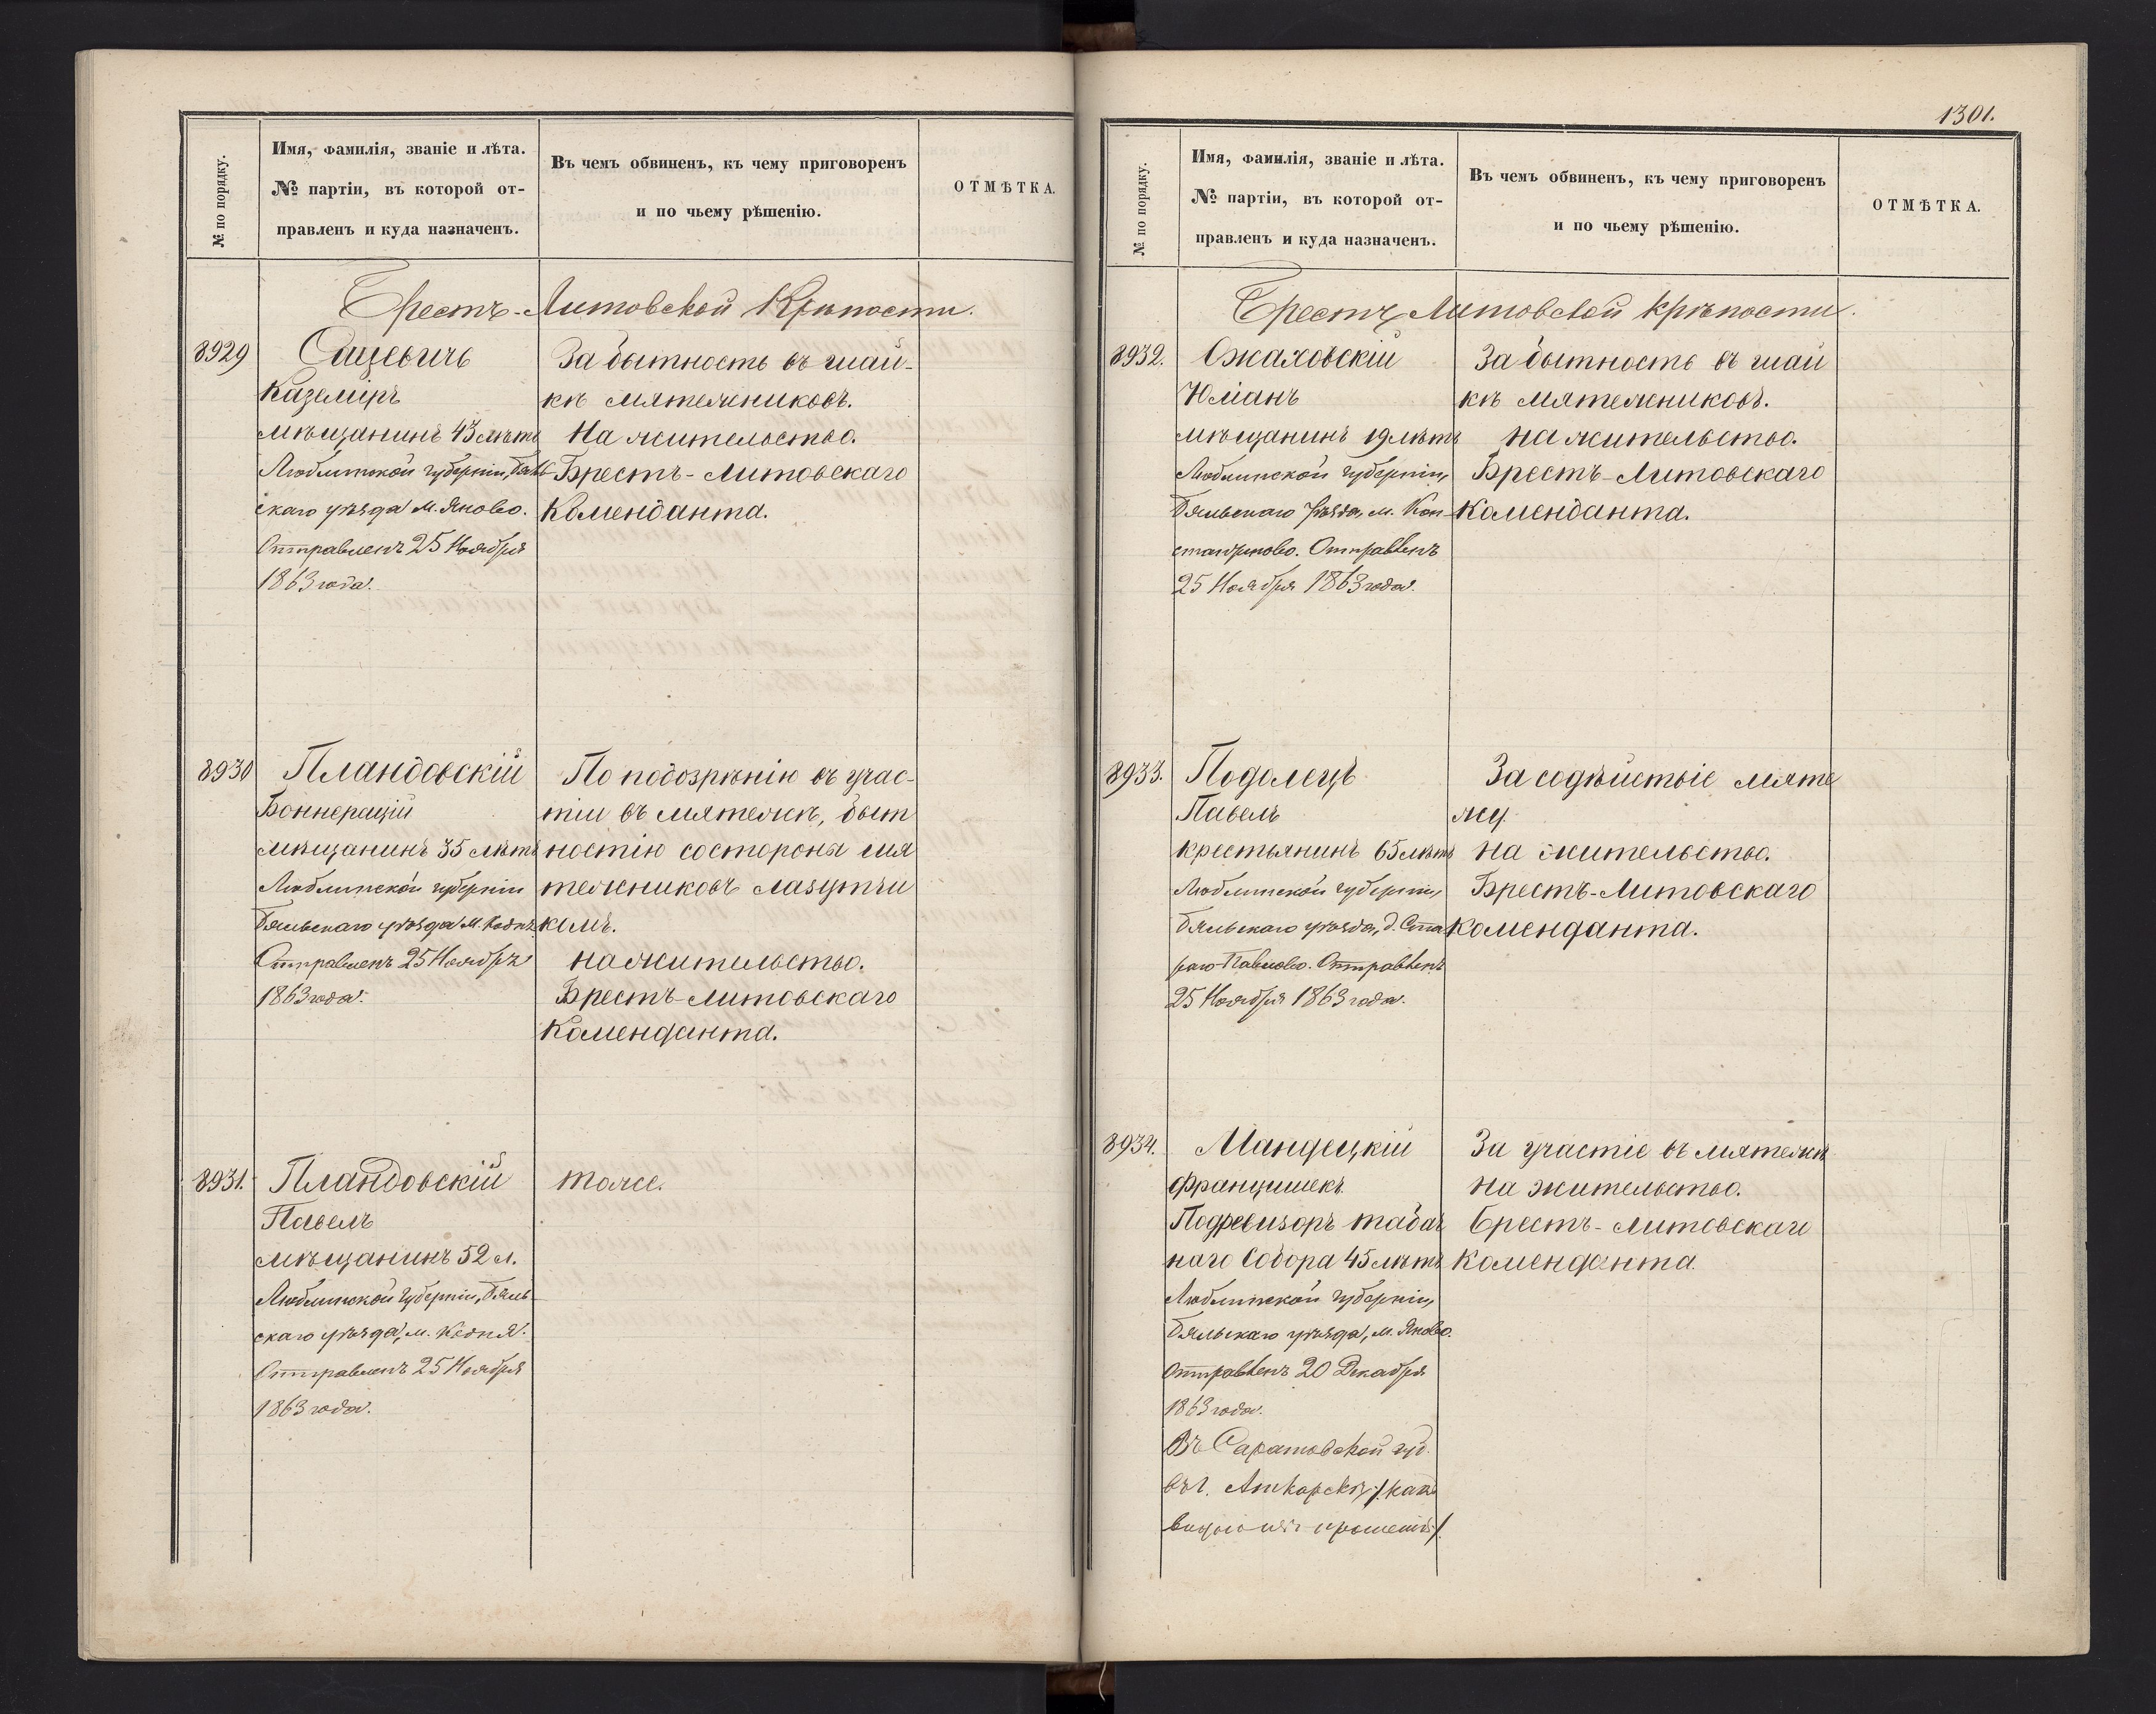 № по порядку.
Имя, фамилія, званіе и лѣта.
№ партіи, въ которой от-
правленъ и куда назначенъ.
Въ чемъ обвиненъ, къ чему приговоренъ
и по чьему рѣшенію.
ОТМѢТКА.
Брестъ-Литовской Крѣпости.
8929
Сацевичъ
Каземіръ
мѣщанинъ 43 лѣтъ
Люблинской губерніи, Бяль
скаго уѣзда м. Яново.
Отправленъ 25 Ноября
1863 года.
За бытность въ шай-
кѣ мятежниковъ.
На жительство.
Брестъ-Литовскаго
Коменданта.
8930
Пландовскій
мѣщанинъ 35 лѣтъ
Люблинской губерніи
Бяльскаго уѣзда м. Кодня
Отправленъ 25 Ноября
1863 года.
По подозрѣнію въ учас-
тіи въ мятежѣ, быт
ностію состороны мя
тежниковъ лазутчи
комъ.
на жительство.
Брестъ-Литовскаго
Коменданта.
8931.
Пландовскій
Павелъ
мѣщанинъ 52 л.
Люблинской Губерніи, Бяль
скаго уѣзда, м. Кодня.
Отправленъ 25 Ноября
1863 года.
тоже.
1301.
№ по порядку.
Имя, фамилія, званіе и лѣта.
№ партіи, въ которой от-
правленъ и куда назначенъ.
Въ чемъ обвиненъ, къ чему приговоренъ
и по чьему рѣшенію.
ОТМѢТКА.
Брестъ-Литовской крѣпости.
8932.
Ожаховскій
Юліанъ
мѣщанинъ 19 лѣтъ
Люблинской губерніи,
Бяльскаго уѣзда, м. Кон
стантиново. Отправленъ
25 Ноября 1863 года.
За бытность въ шай
кѣ мятежниковъ.
на жительство.
Брестъ-Литовскаго
Коменданта.
8933.
Подолецъ
Павелъ
крестьянинъ 65 лѣтъ
Люблинской губерніи,
Бяльскаго уѣзда, д. Ста
раго Павлово. Отправленъ
25 Ноября 1863 года.
За содѣйствіе мяте
жу.
на жительство.
Брестъ-Литовскаго
коменданта.
8934.
Мандецкій
Францишекъ
Подревизоръ табач
наго Сбора 45 лѣтъ
Люблинской Губерніи,
Бяльскаго уѣзда, м. Яново.
Отправленъ 20 Декабря
1863 года.
Въ Саратовской губ.
въ г. Аткарскѣ /: какъ
видно изъ прошенія :/
За участіе въ мятежѣ
на жительство.
Брестъ-Литовскаго
Коменданта.